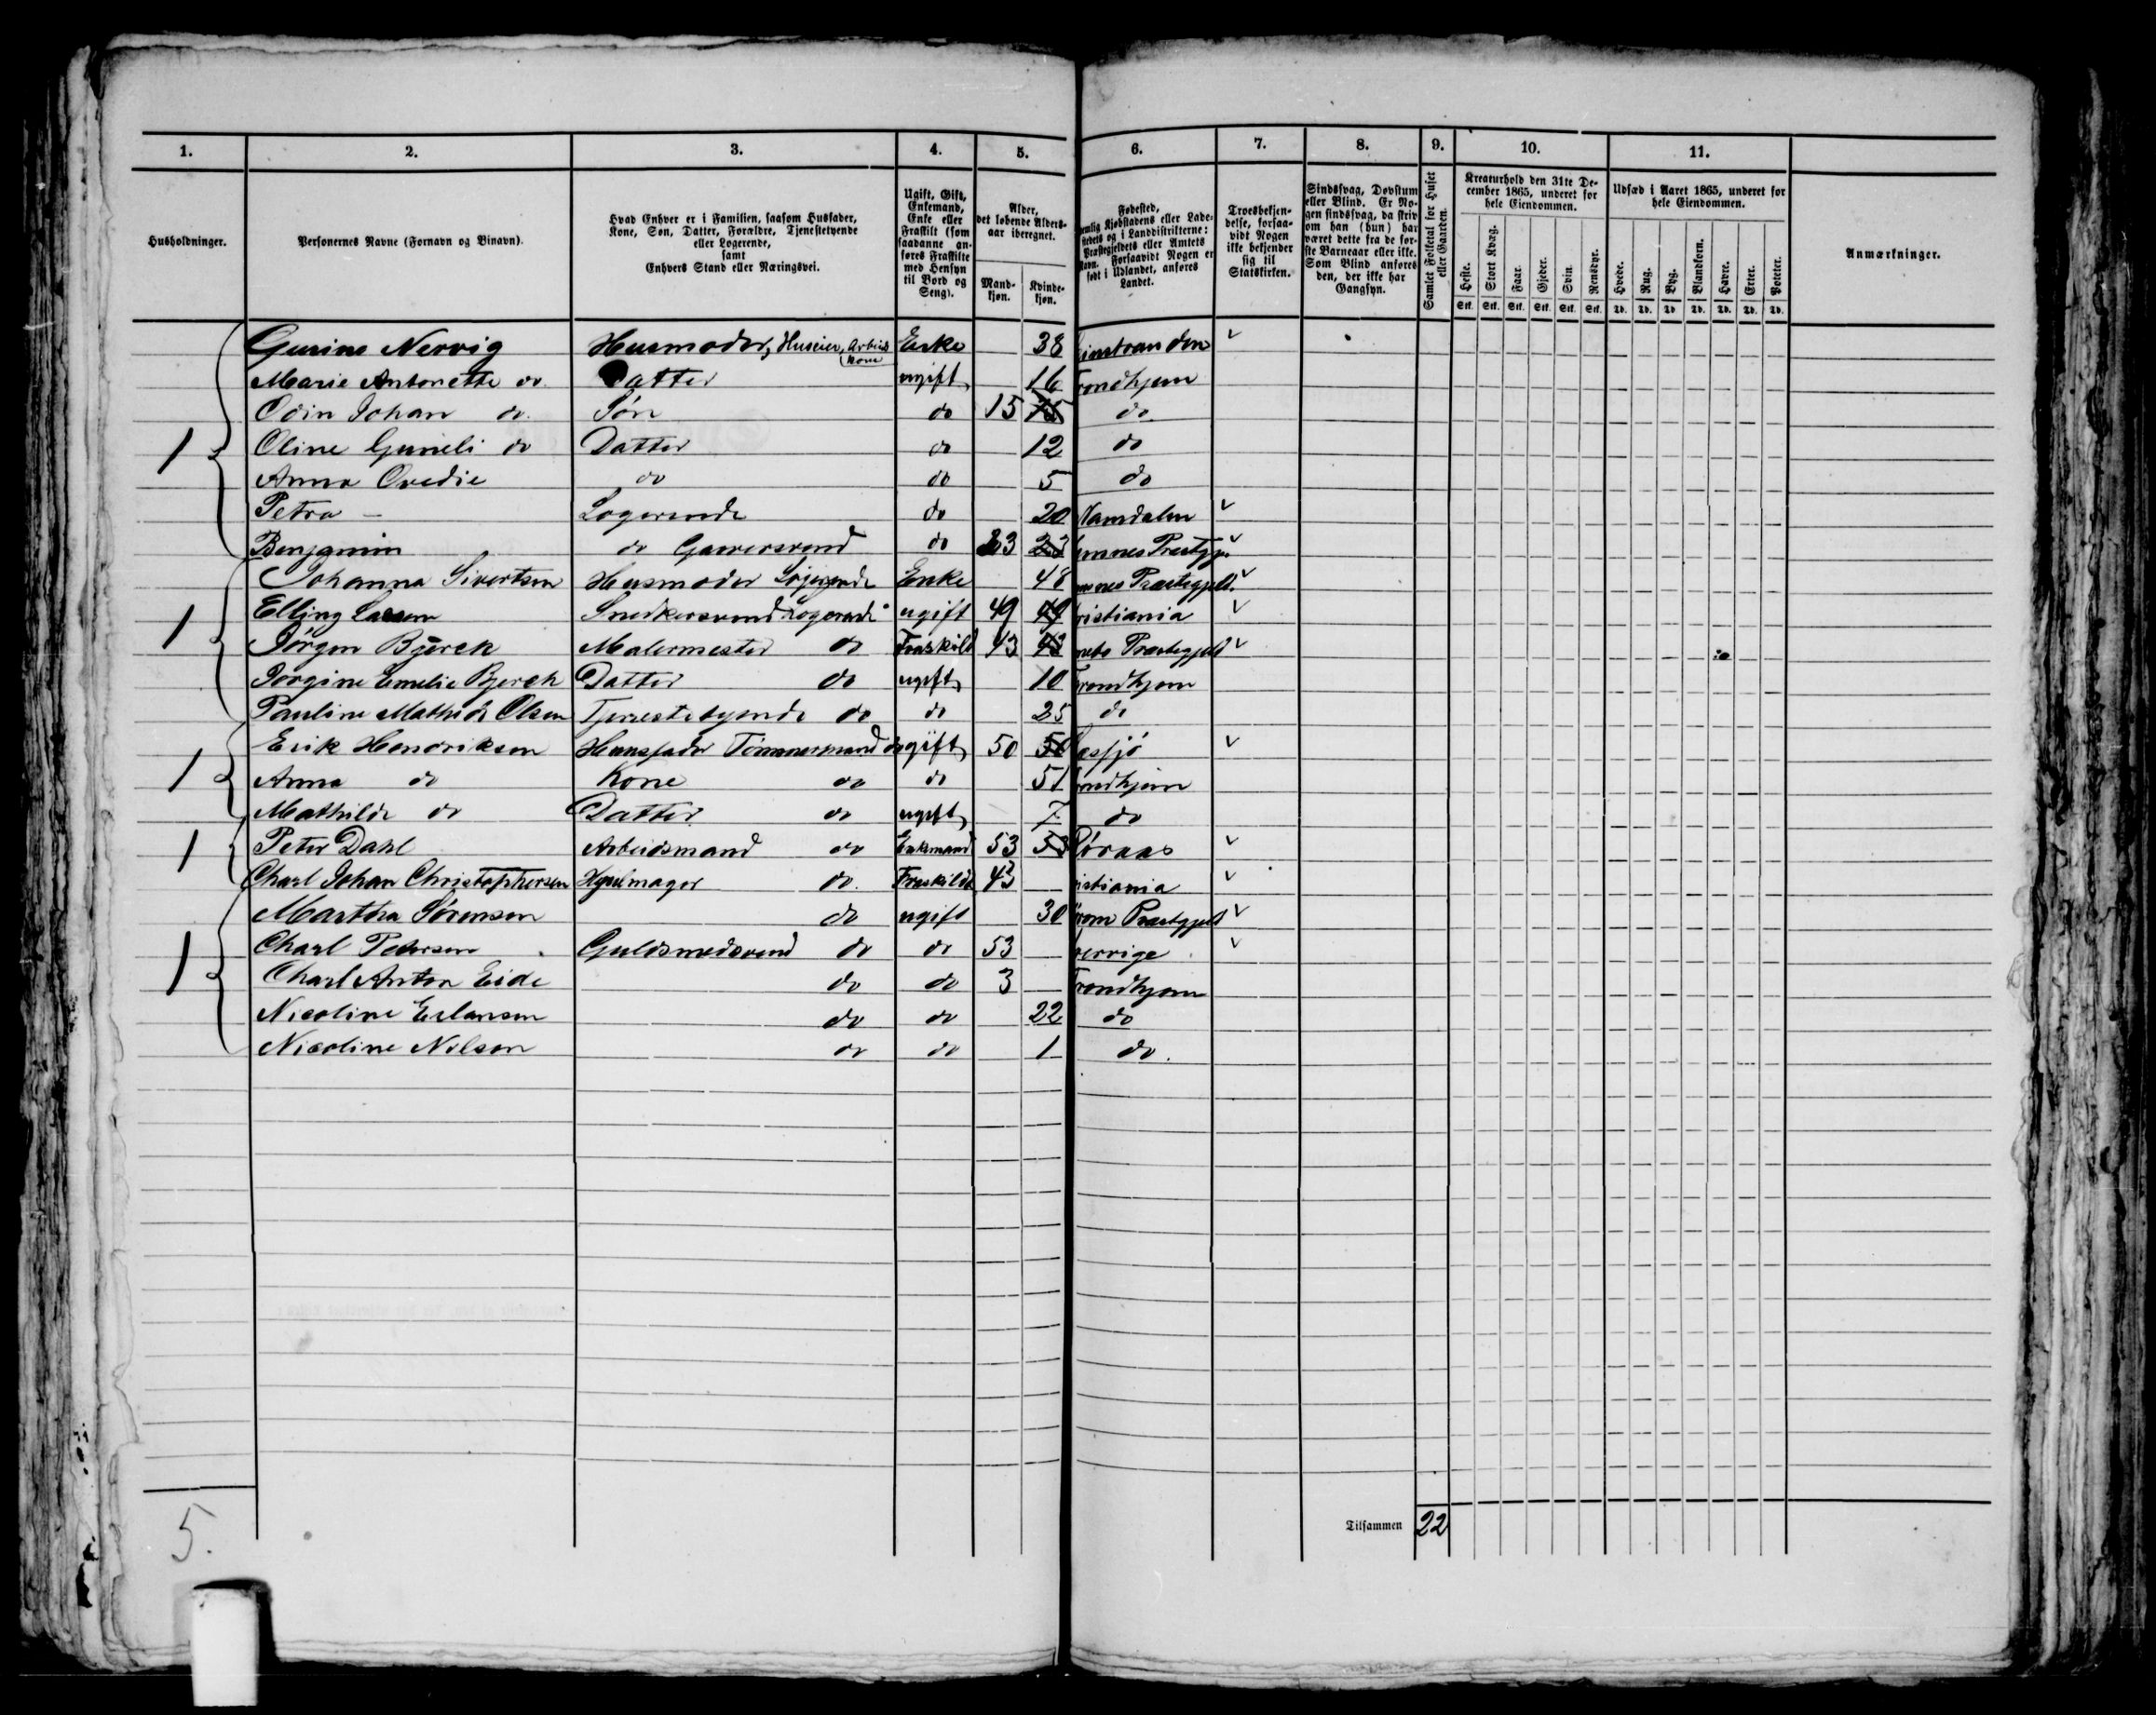 1. 2. 3. 4. 5. 6. 7. 8. 9. 10. 11.
Husholdninger.
Personernes Navne (Fornavn og Binavn).
Hvad Enhver er i Familien, saasom Husfader,
Kone, Søn, Datter, Forældre, Tjenestetyende
eller Logerende,
samt
Enhvers Stand eller Næringsvei.
Ugift, Gift,
Enkemand,
Enke eller
Fraskilt (som
saadanne an-
føres Fraskilte
med Hensyn
til Bord og
Seng).
Alder,
det løbende Alders-
aar iberegnet.
Mand-
kjøn.
Kvinde-
kjøn.
Fødested,
nemlig Kjøbstadens eller Lade-
stedets og i Landdistrikterne:
Præstegjeldets eller Amtets
Navn. Forsaavidt Nogen er
født i Udlandet, anføres
Landet.
Troesbekjen-
delse, forsaa-
vidt Nogen
ikke bekjender
sig til
Statskirken.
Sindssvag, Døvstum
eller Blind. Er No-
gen sindssvag, da skriv
om han (hun) har
været dette fra de før-
ste Barneaar eller ikke.
Som Blind anføres
den, der ikke har
Gangsyn.
Samlet Folketal for Huset
eller Gaarden.
Kreaturhold den 31te De-
cember 1865, underet for
hele Eiendommen.
Heste. Stort Kvæg. Faar. Gjeder. Svin. Rensdyr.
Stk. Stk. Stk. Stk. Stk. Stk.
Udsæd i Aaret 1865, underet for
hele Eiendommen.
Hvede. Rug. Byg. Blandkorn. Havre. Erter. Poteter.
Td. Td. Td Td. Td. Td. Td.
Anmærkninger.
Gurine Nervig Husmoder, Huseier, Arbeids kone Enke 38
Marie Antonette do. Datter ugift 16 Trondhjem
Odin Johan do. Søn do 15 15 do
1 Oline Gurieli do Datter do 12 do
Anna Ovedie do do 5 do
Petra – Logerende do 20 Namdalen
Benjamin do Garversvend do 23 23
Johanna Sivertsen Husmoder Logerende Enke 48
1 Elling Larsen Snedkersvend Logerende ugift 49 49 ristiania
Jørgen Bjerck Malermester do Fraskild 43 43
Jorgine Emelie Bjerck Datter do ugift 10 Trondhjem
Pauline Mathilde Olsen Tjenestetyende do do 25 do
Erik Hendriksen Huusfader Tømmermand do gift 50 50
1 Anna do Kone do do 51 Trondhjem
Mathilde do Datter do ugift 7 do
1 Peter Dahl Arbeidsmand do Enkemand 53 53 Røraas
Charl Johan Christophersen Hjulmager do. Fraskildt 43 istiania
Martha Sørensen do ugift 30
1 Charl Pedersen Guldsmedsvend do do 53 verrige
Charl Anton Eide do do 3 Trondhjem
Nicoline Erlansen do do 22 do
Nicoline Nilsen do do 1 do.
5.
Tilsammen 22